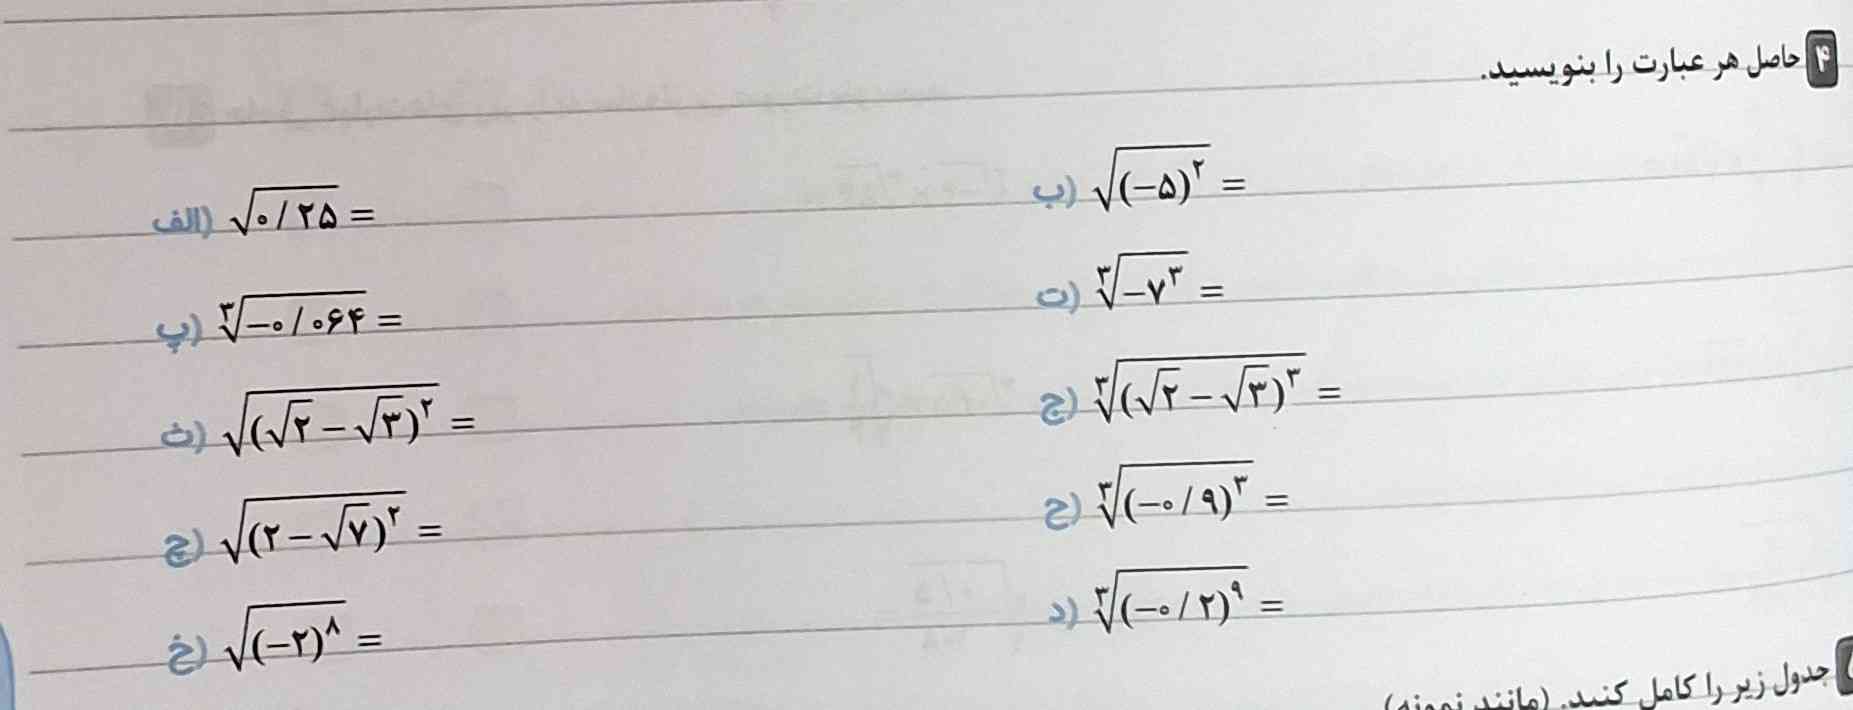 ۴ حاصل هر عبارت را بنویسید.
الف) √۰/۲۵ =
ب) √(−۵)^۲ =
پ) ∛−۰/۰۶۴ =
ت) ∛−۷^۳ =
ث) √(√۲ − √۳)^۲ =
ج) ∛(√۲ − √۳)^۳ =
چ) √(۲ − √۷)^۲ =
ح) ∛(−۰/۹)^۳ =
خ) √(−۲)^۸ =
د) ∛(−۰/۲)^۹ =
جدول زیر را کامل کنید. (مانند نمونه)